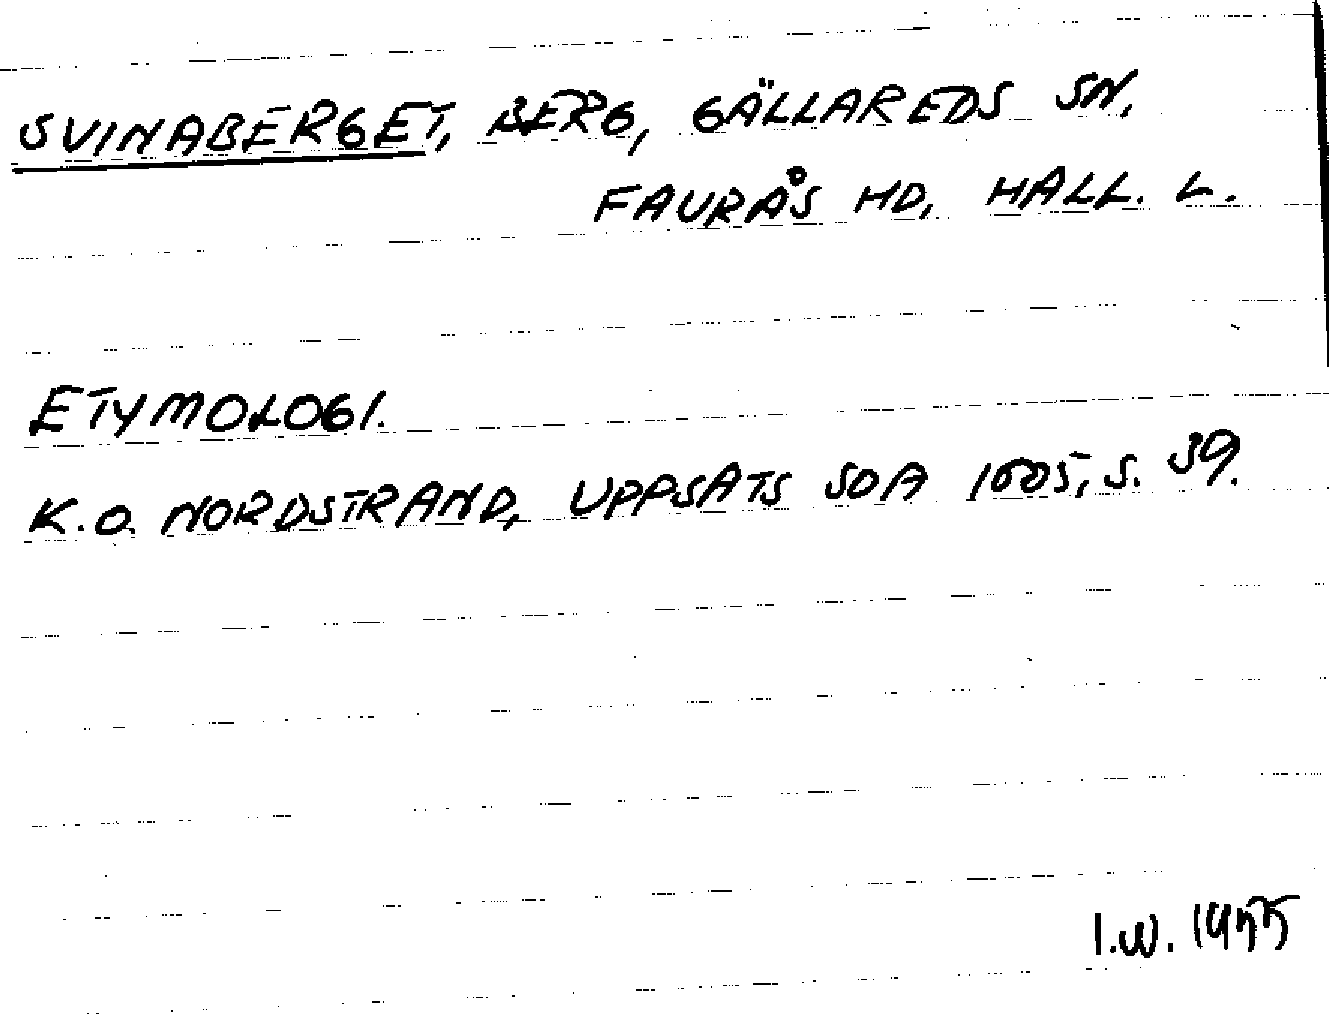 SVINABERGET, BERG, GÄLLAREDS SN,
FAURÅS HD, HALL. L.
ETYMOLOGI.
K.O. NORDSTRAND, UPPSATS SOA 1605, S. 39.
I.W.